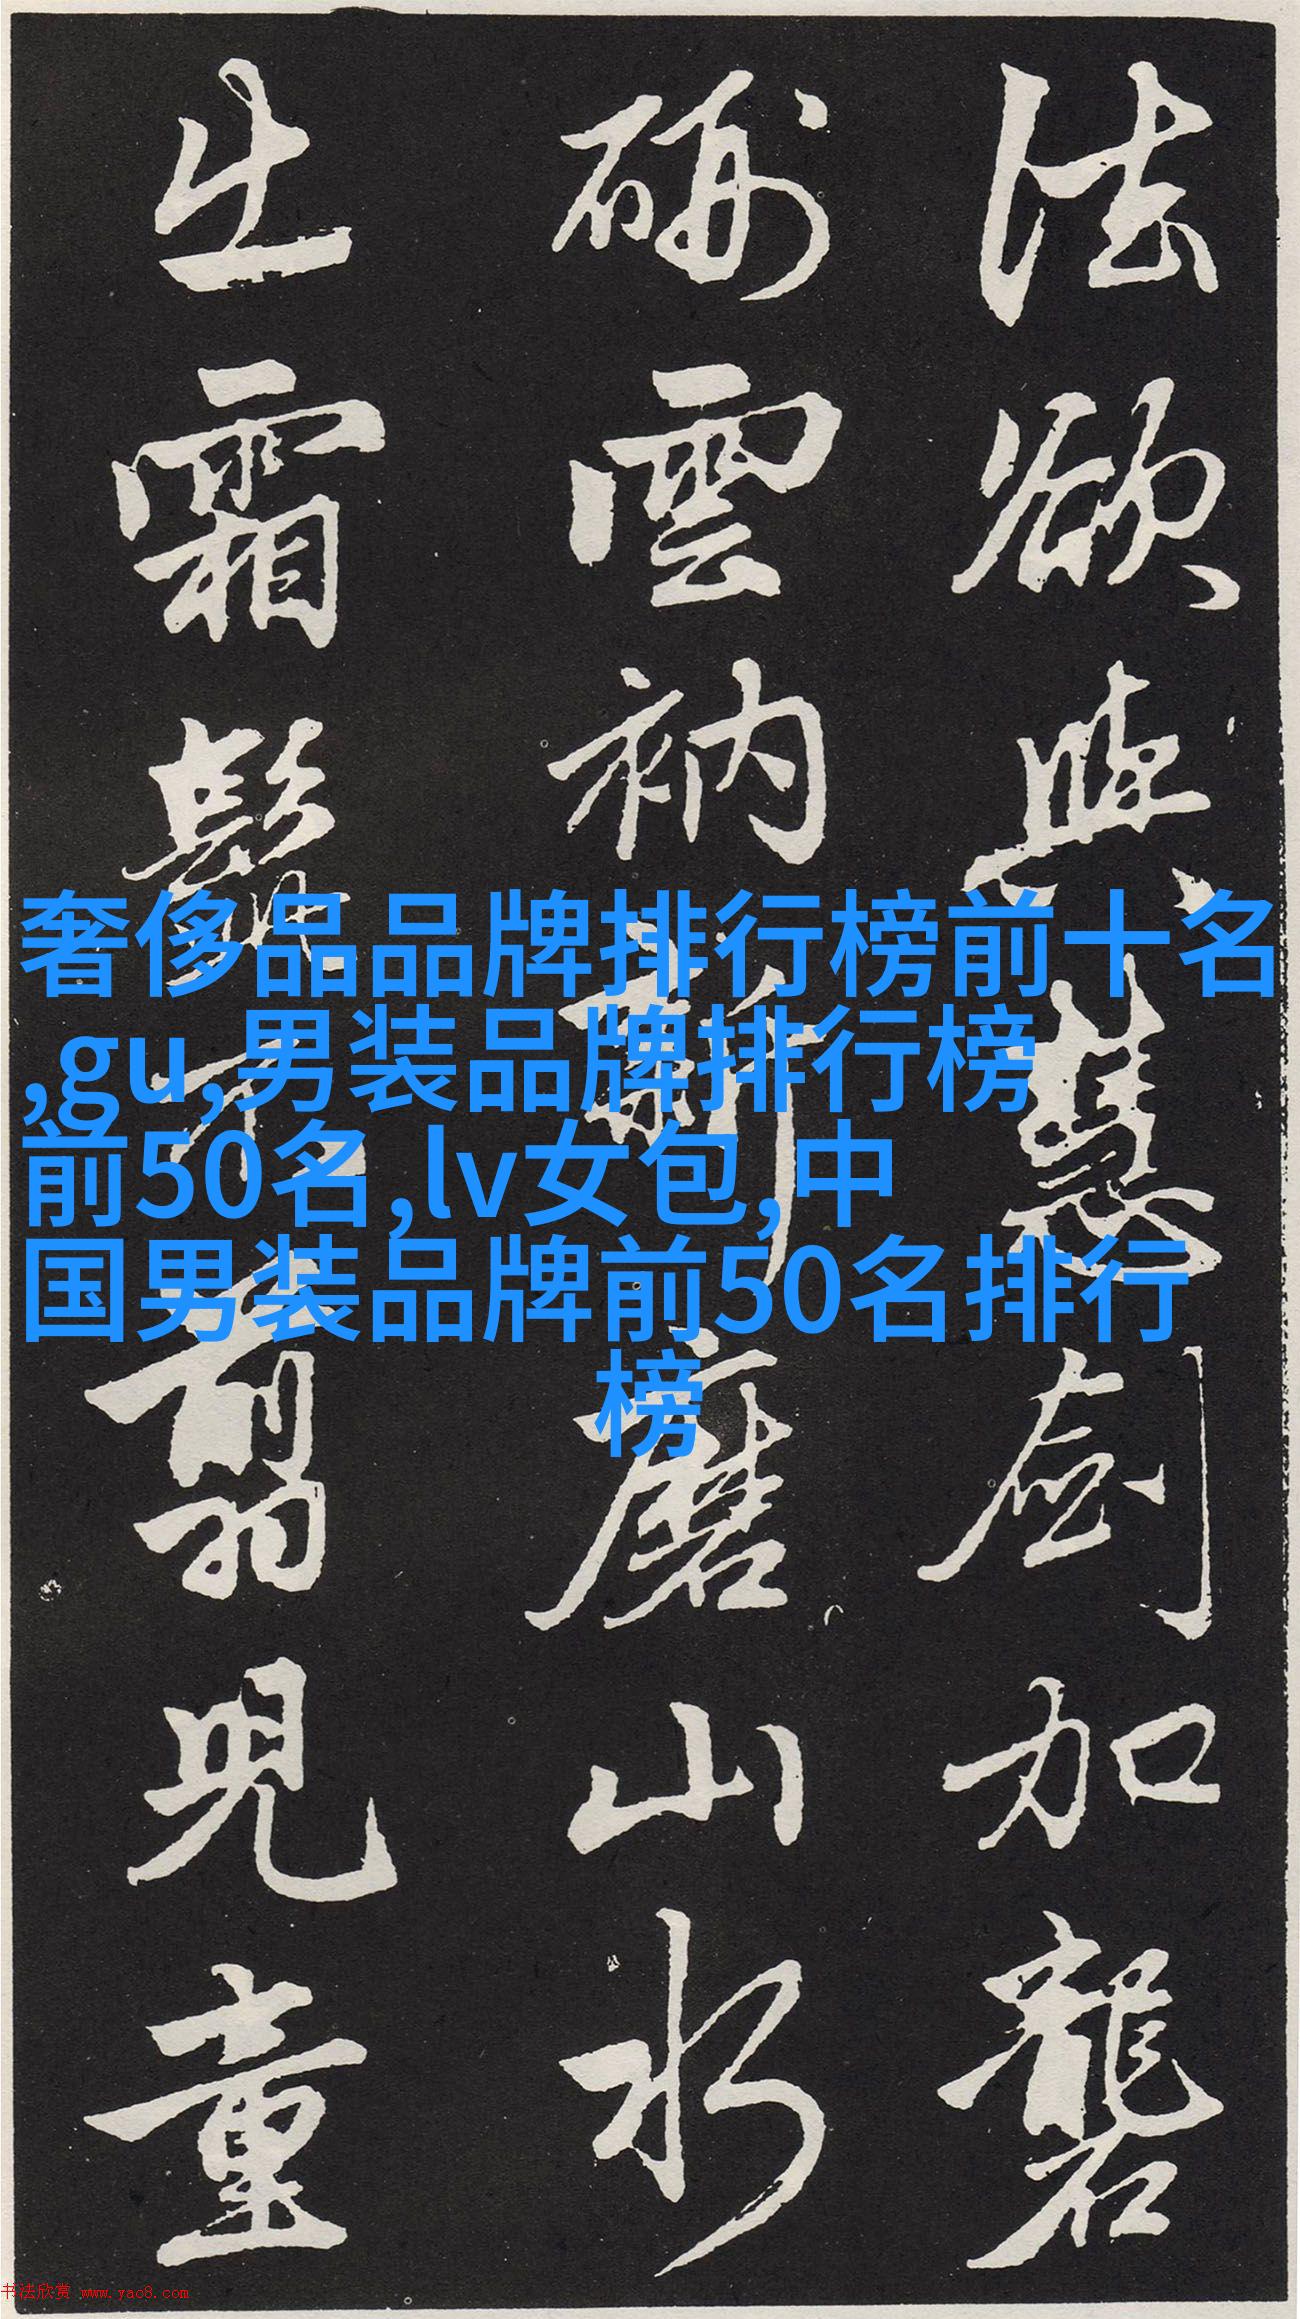 奢侈品品牌排行榜前十名
,gu,男装品牌排行榜
前50名,lv女包,中
国男装品牌前50名排行
榜
法欲與慧劍加礱
硎雲衲新磨山水
出霜髭不翦兒童
书法欣赏 www.yac8.com